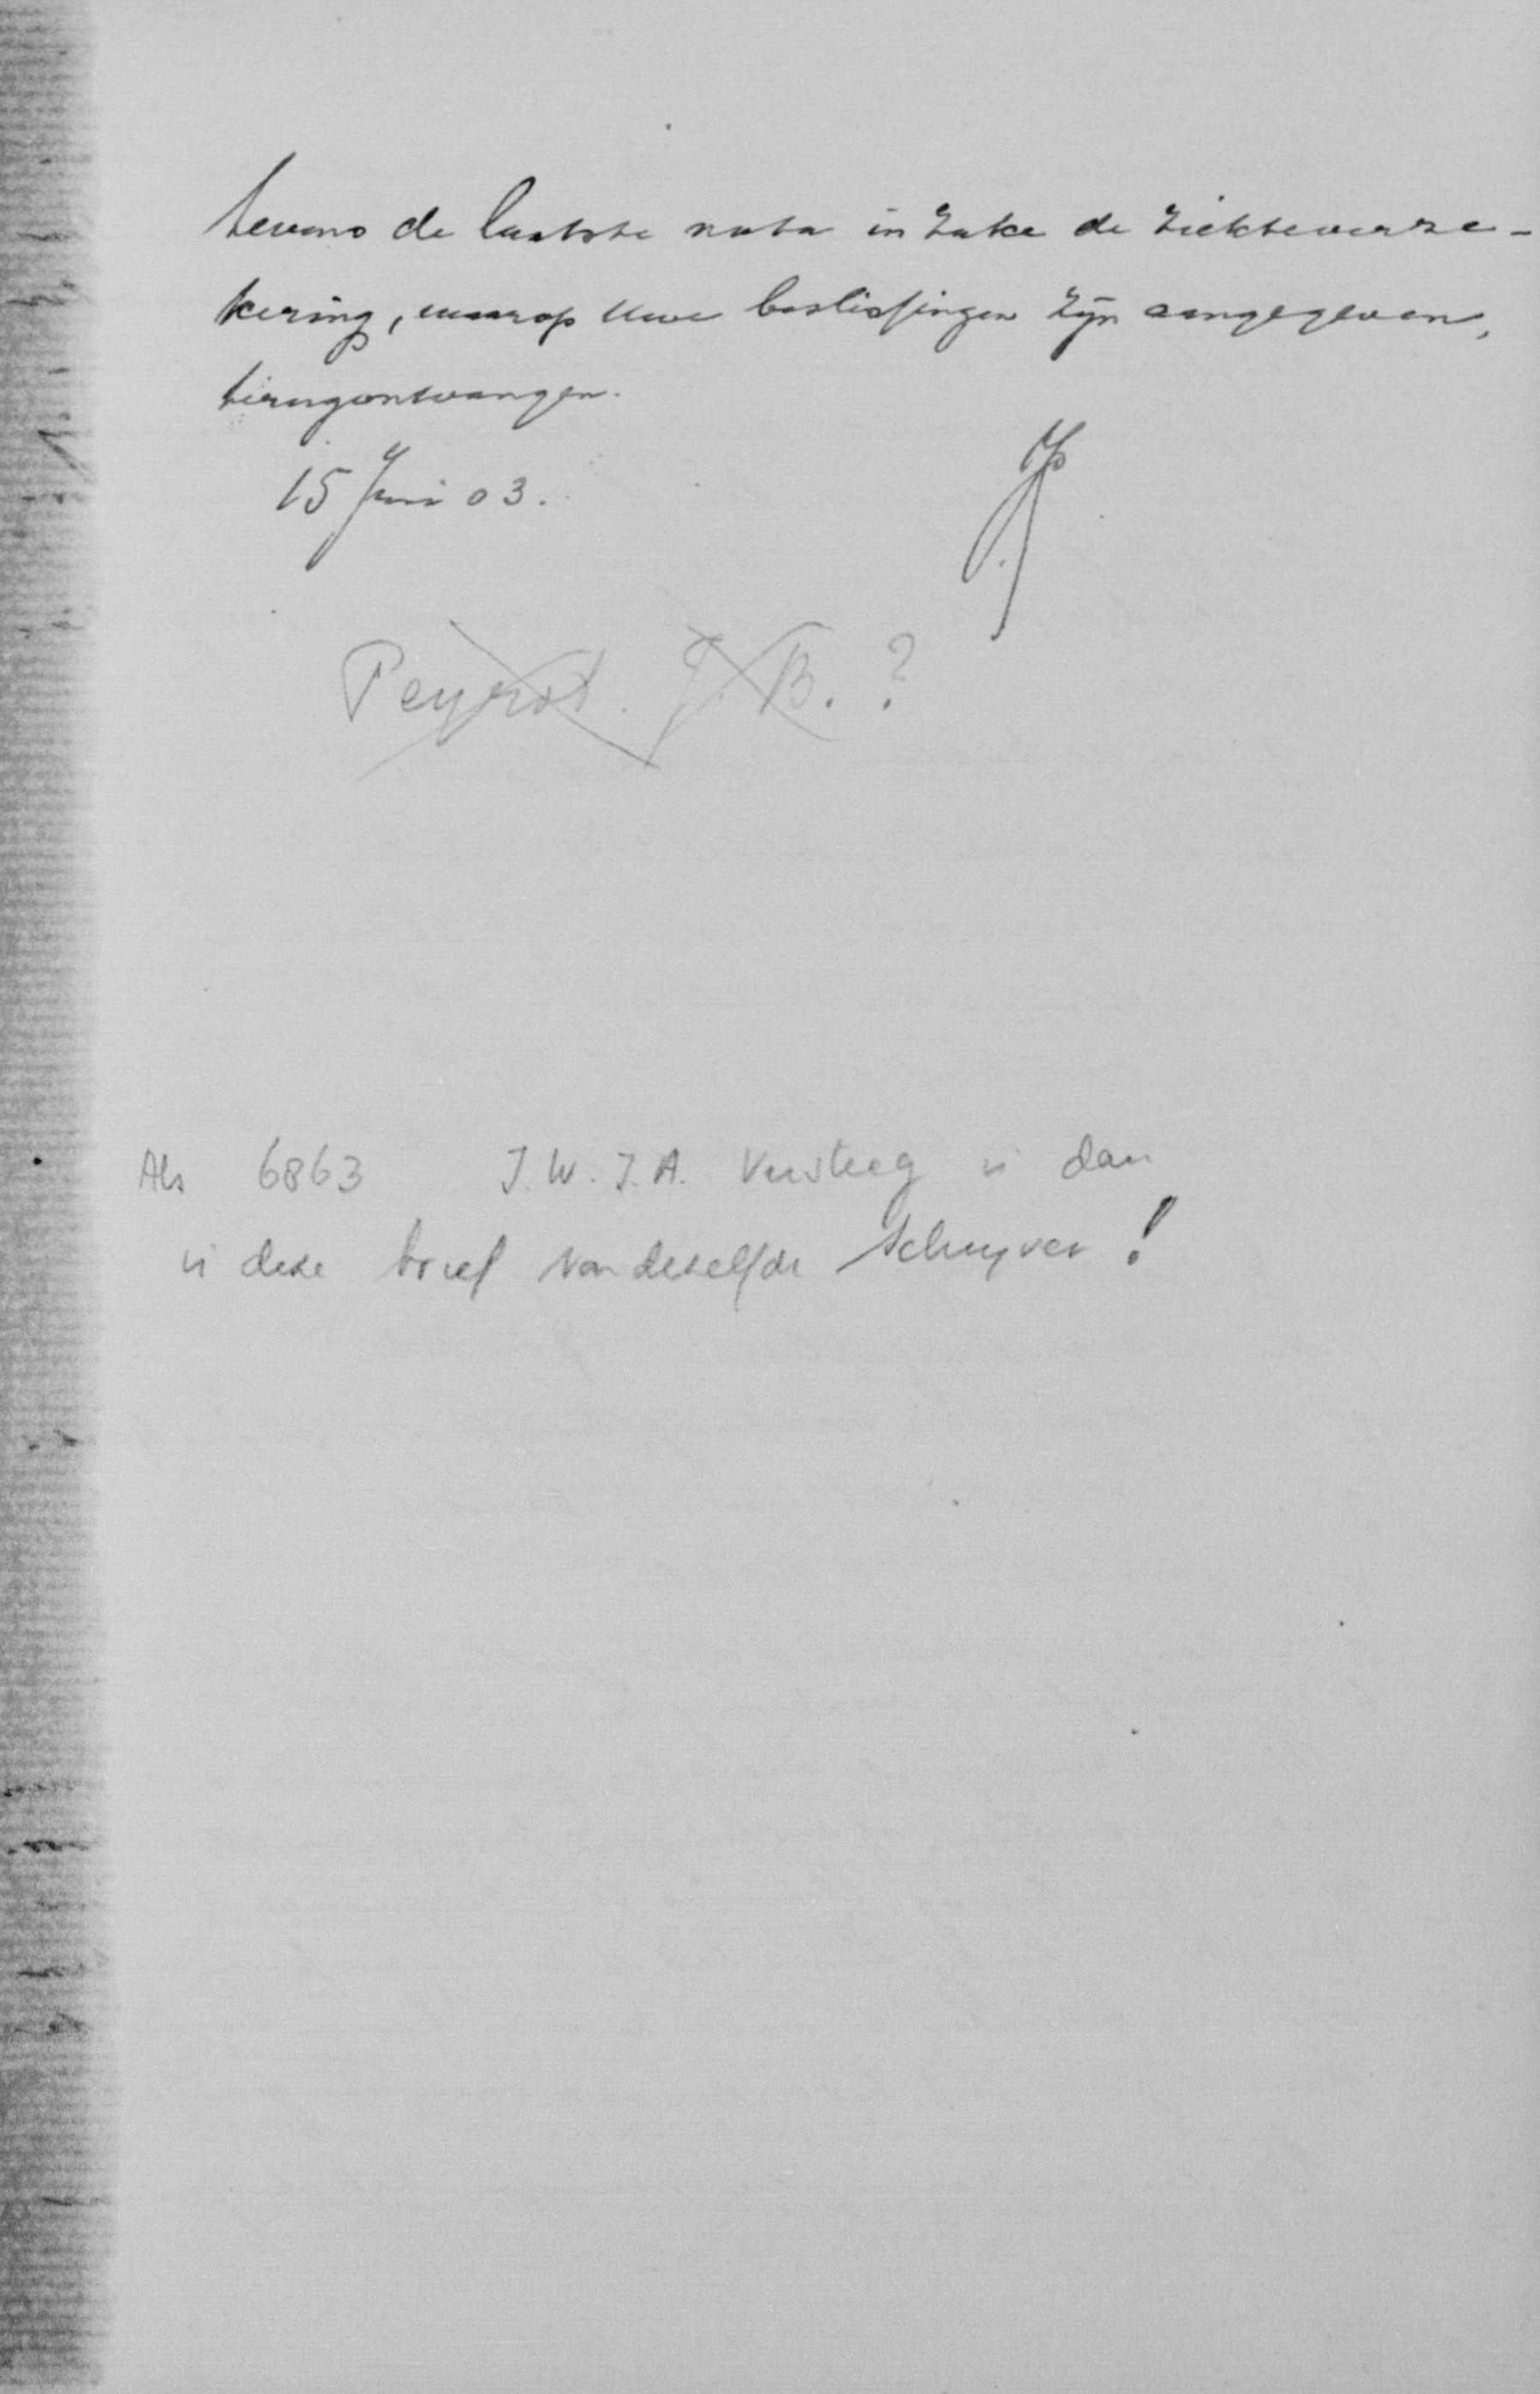 tevens de laatste nota in zake de ziekteverze-
kering, waarop Uwe beslissingen zijn aangegeven,
terugontvangen.
15 Juni 03.
Peyrot. J. B. ?
Als 6863 J. W. J. A. Versteeg is dan
is deze brief van dezelfde schryver !